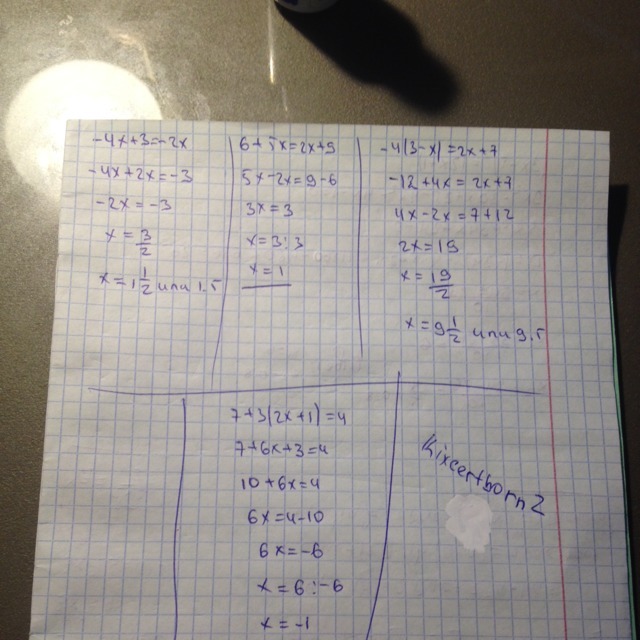 -4x+3=-2x
-4x+2x=-3
-2x=-3
x=3/2
x=1 1/2 или 1.5
6+5x=2x+9
5x-2x=9-6
3x=3
x=3:3
x=1
-4(3-x)=2x+7
-12+4x=2x+7
4x-2x=7+12
2x=19
x=19/2
x=9 1/2 или 9.5
7+3(2x+1)=4
7+6x+3=4
10+6x=4
6x=4-10
6x=-6
x=6:-6
x=-1